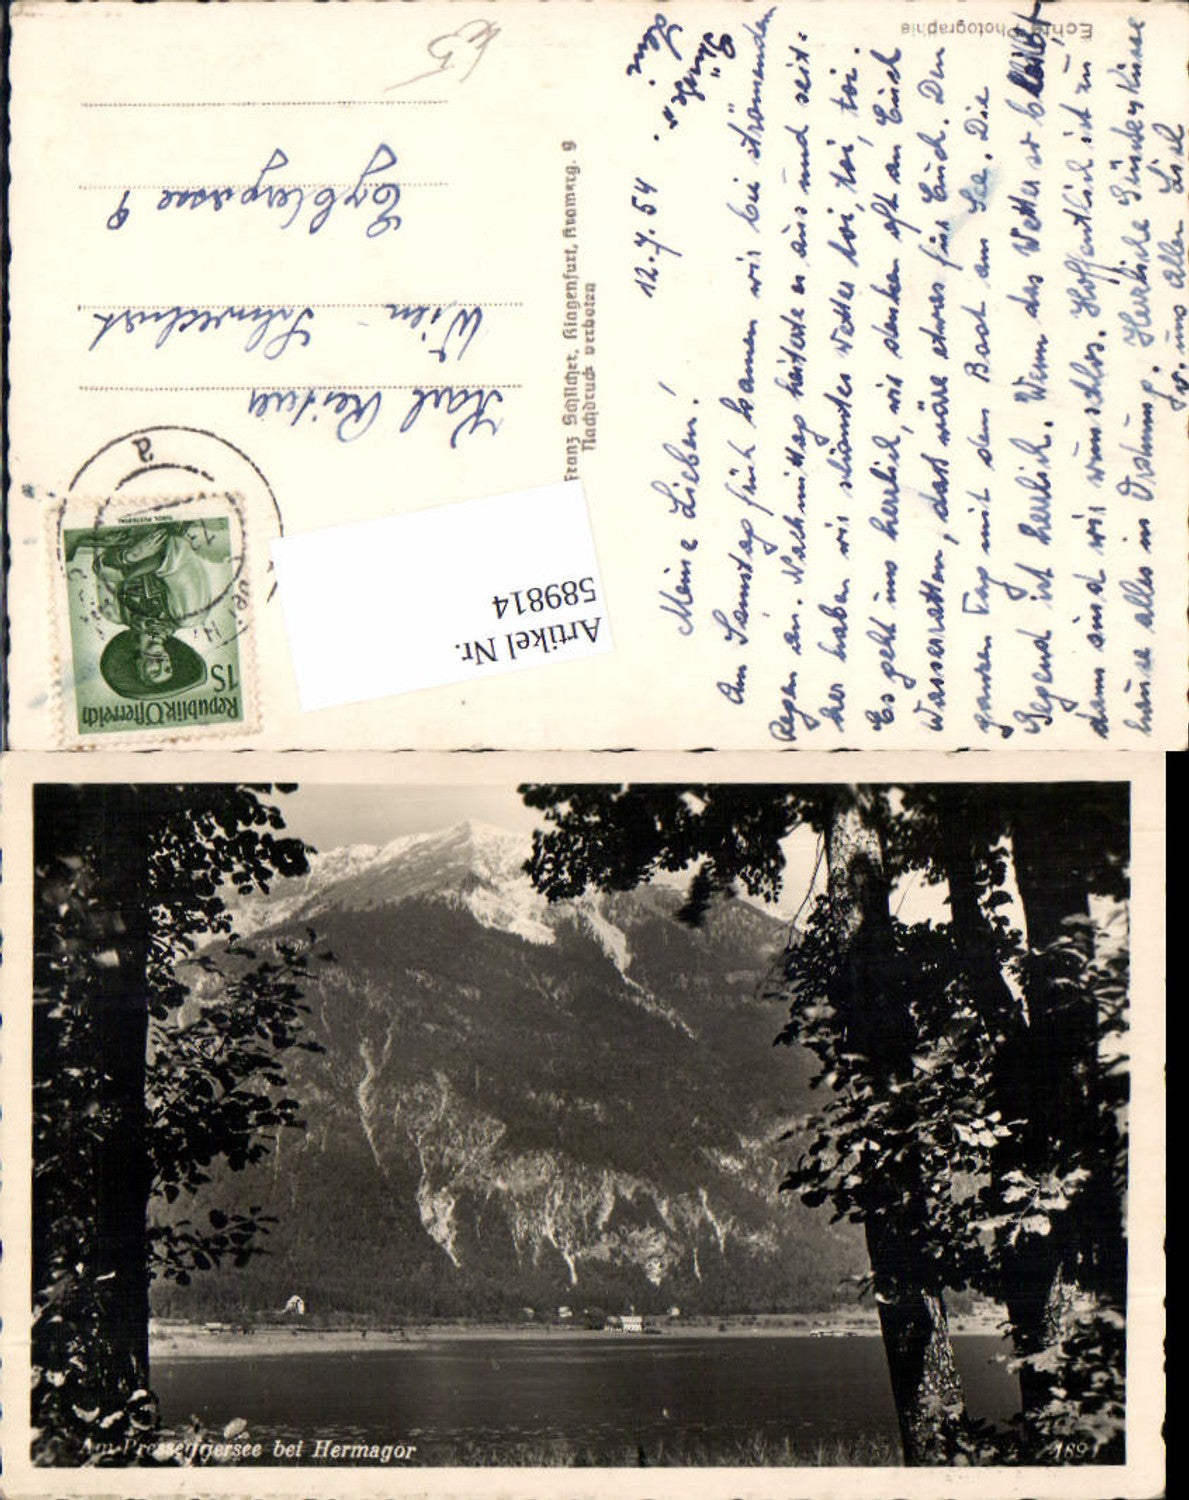 Echte Photographie
12.7.54
Meine Lieben!
Am Samstag früh kamen wir bei strömenden
Regen an. Nachmittag heiterte es aus und seit-
her haben wir schönstes Wetter toi, toi, toi.
Es geht uns herrlich, wir denken oft an Euch
Wasserratten, das wäre etwas für Euch. Den
ganzen Tag mit dem Boot am See. Die
Gegend ist herrlich. Wenn das Wetter so bleibt,
dann sind wir wunschlos. Hoffentlich ist zu
hause alles in Ordnung. Herzliche Küsse
von uns allen
Franz Schilcher, Klagenfurt, Kramerg. 9
Nachdruck verboten
Karl
Wien - Schwechat
9
Republik Österreich
1S
a
Artikel Nr.
589814
Am Presseggersee bei Hermagor
189